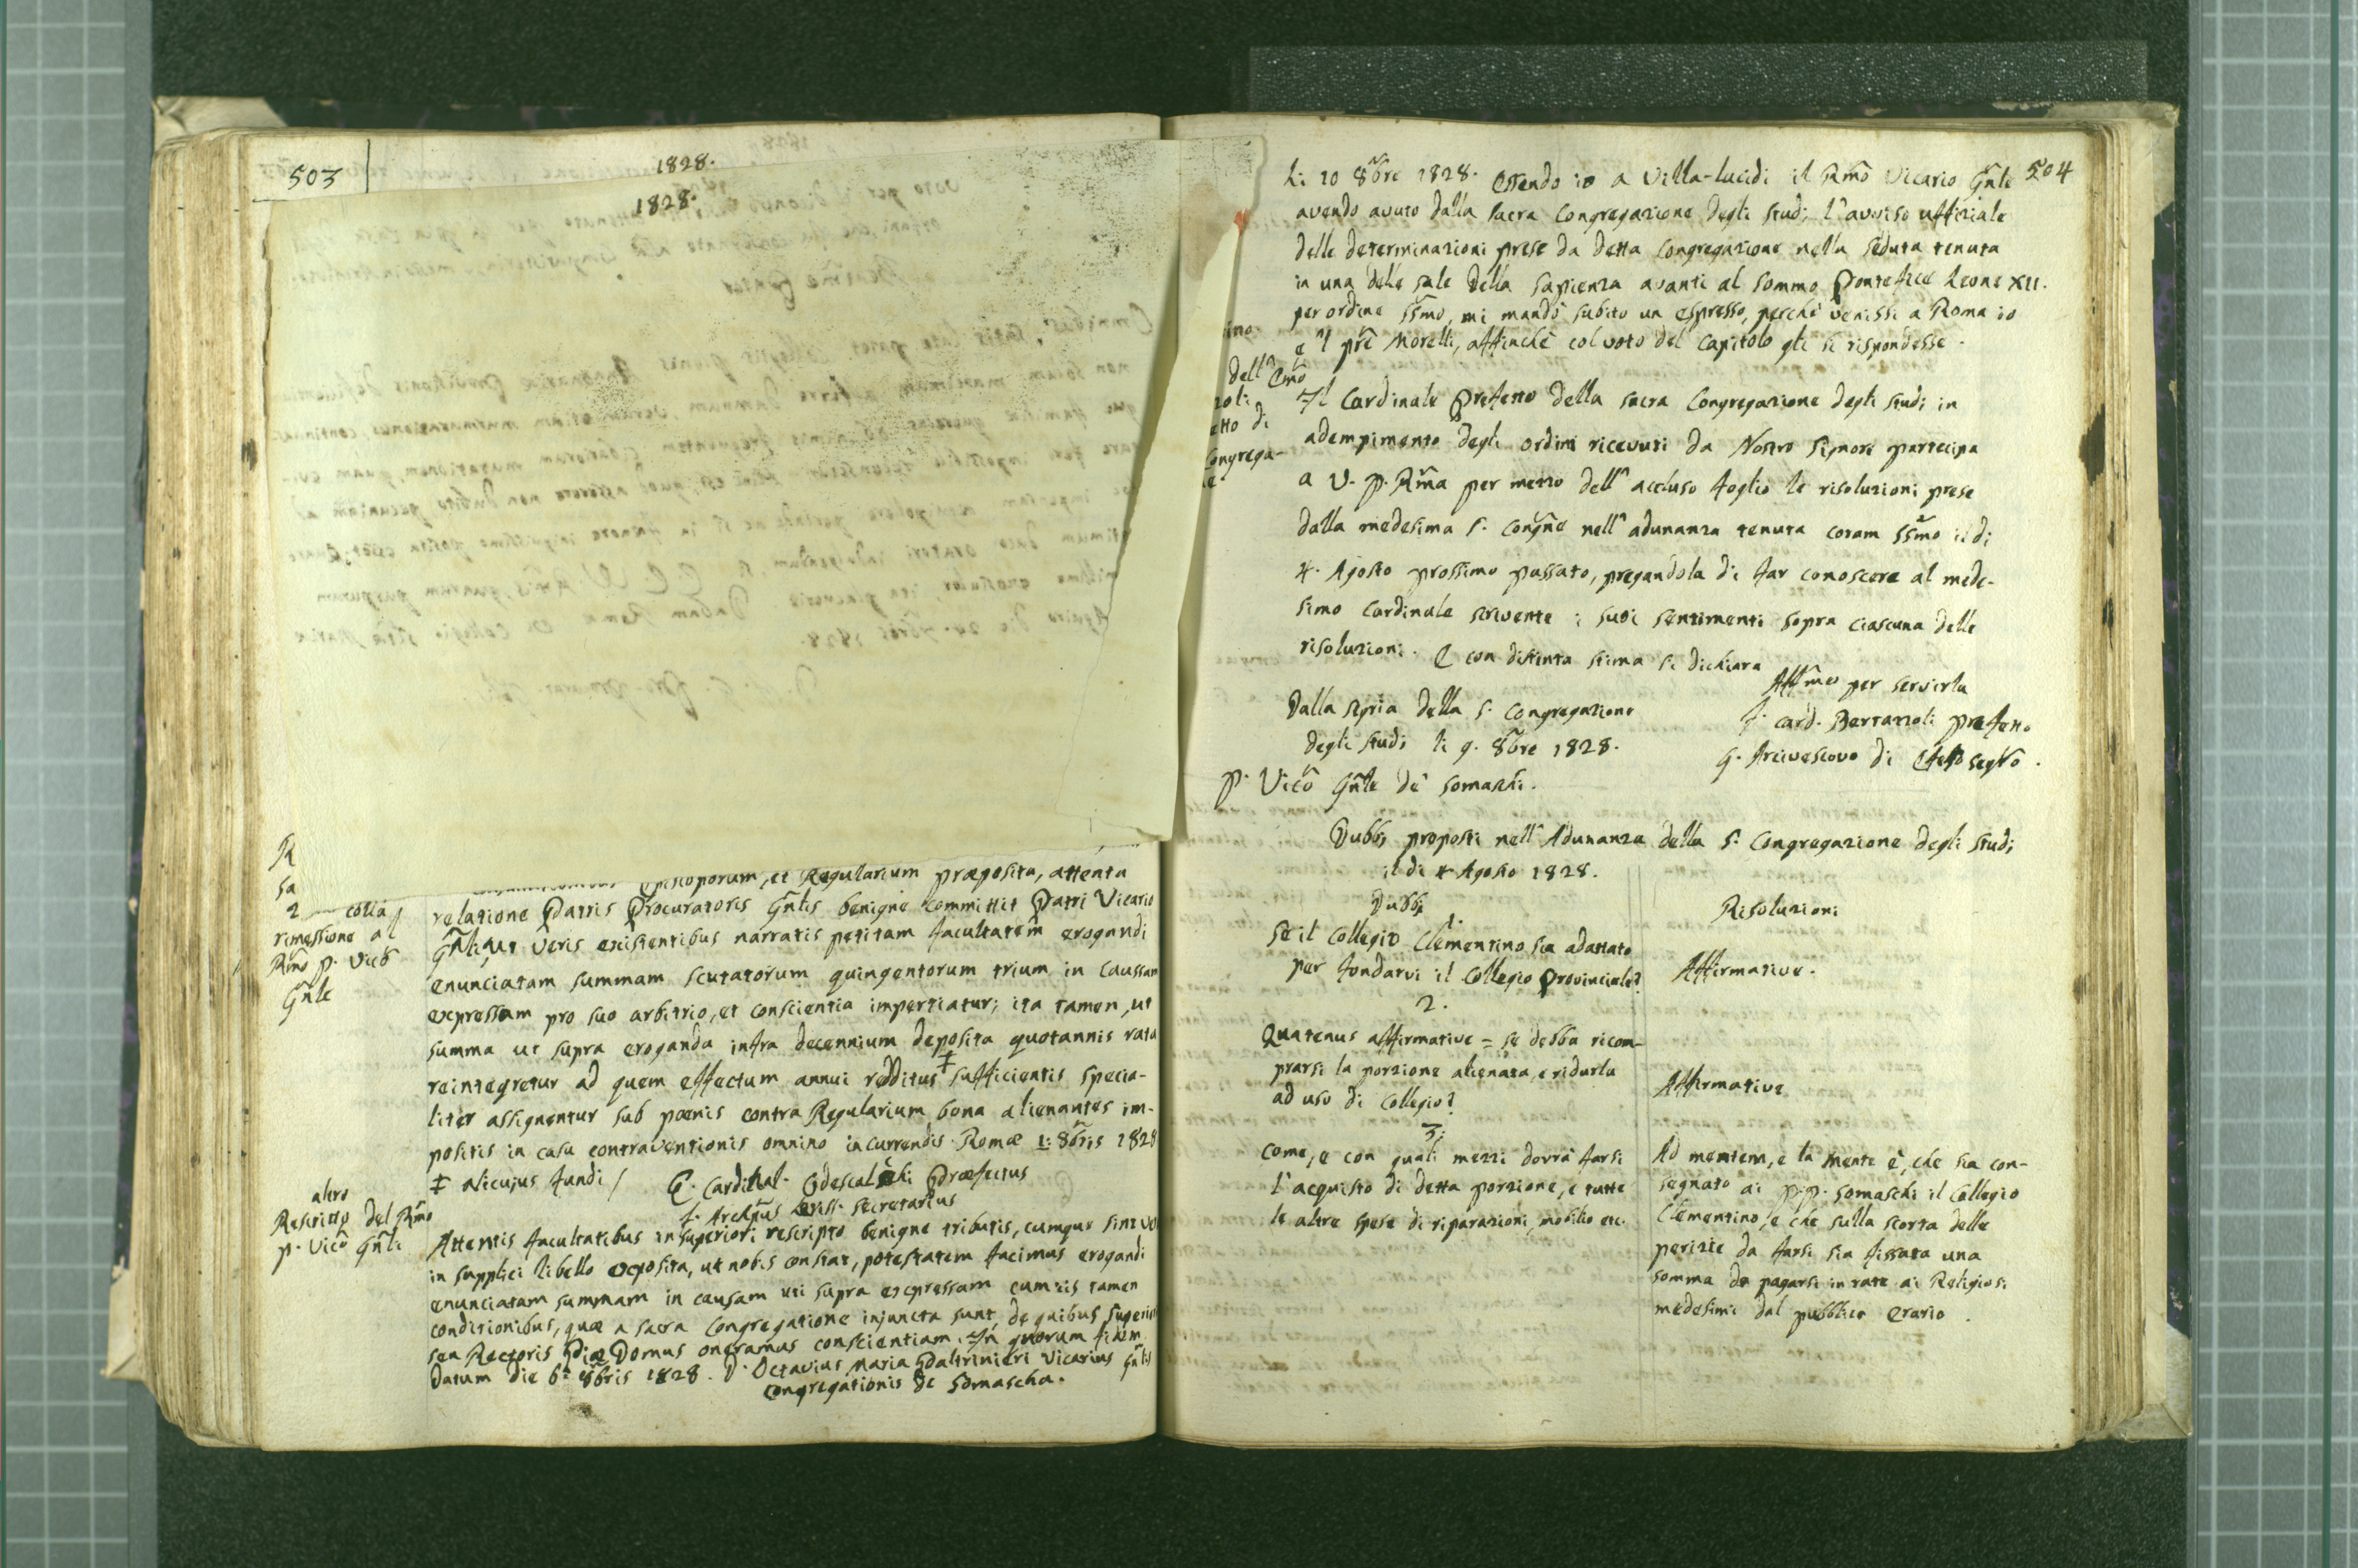 503
1828.
1828.
R
sa
2 colla
rimessione al
Rm̃o p. Vicõ
Gñle
Episcoporum, et Regularium præposita, attenta
relatione Patris Procuratoris Gñlis benigne committit Patri Vicario
Gñli, ut veris existentibus narratis petitam facultatem erogandi
enunciatam summam scutatorum quingentorum trium in Caussam
expressam pro suo arbitrio, et conscientia impertiatur; ita tamen, ut
summa ut supra eroganda infra decennium deposita quotannis rata
reintegretur ad quem effectum annui redditus ‡ sufficientis specia-
liter assignentur sub pœnis contra Regularium bona alienantes im-
positis in casu contraventionis omnino incurrendis. Romæ 1: 8bris 1828
‡ alicujus fundi / C. Cardinal. Odescalchi Præfectus
J. Archpũs Secretarius
altro
Rescritto del Rm̃o
p. Vicõ Gñli
Attentis facultatibus in superiori rescripto benigne tributis, cumque sint ve
in supplici libello exposita, ut nobis constat, potestatem facimus erogandi
enunciatam summam in causam uti supra expressam cum iis tamen
conditionibus, quæ a sacra Congregatione injuncta sunt, de quibus superio
seu Rectoris Domus oneramus conscientiam. In quorum fidem
Datum die 6a 8bris 1828. D. Octavius Maria Paltrinieri Vicarius Gñlis
Congregationis de Somascha.
504
Li 10 8bre 1828. Essendo io a Villa-lucidi il Rm̃o Vicario Gñle
avendo avuto dalla sacra Congregazione degli studi l'avviso uffiziale
delle determinazioni prese da detta Congregazione nella seduta tenuta
in una delle sale della sapienza avanti al sommo Pontefice Leone XII.
per ordine SSmo, mi mandò subito un espresso, perchè venissi a Roma io
e 'l pr̃e Morelli, affinchè col voto del Capitolo gli si rispondesse.
ino
dell' Em̃o
zoli
etto di
Congrega-
e
Il Cardinale Prefetto della sacra Congregazione degli studi in
adempimento degli ordini ricevuti da Nostro Signore partecipa
a V. P. Rm̃a per mezzo dell' accluso foglio le risoluzioni prese
dalla medesima S. Congñe nell' adunanza tenuta coram SSmo il di
4. Agosto prossimo passato, pregandola di far conoscere al mede-
simo Cardinale scrivente i suoi sentimenti sopra ciascuna delle
risoluzioni. E con distinta stima si dichiara
Affm̃o per servirla
Dalla segria della S. Congregazione
f. card. Bertazzoli prefetto
degli studi li 9. 8bre 1828.
G. Arcivescovo di segrõ.
P. Vicõ Gñle de' Somaschi.
Dubbi proposti nell' Adunanza della S. Congregazione degli studi
il di 4 Agosto 1828.
Dubbi
Risoluzioni
1.
Se il Collegio Clementino sia adattato
per fondarvi il Collegio Provinciale?
Affirmative.
2.
Quatenus affirmative = se debba ricom-
prarsi la porzione alienata, e ridurla
ad uso di Collegio?
Affirmative
3.
Come, e con quali mezzi dovrà farsi
l'acquisto di detta porzione, e tutte
le altre spese di riparazioni, mobilio etc.
Ad mentem, e la mente è, che sia con-
segnato ai P.P. Somaschi il Collegio
Clementino, e che sulla scorta delle
perizie da farsi sia fissata una
somma da pagarsi in rate ai Religiosi
medesimi dal pubblico erario.